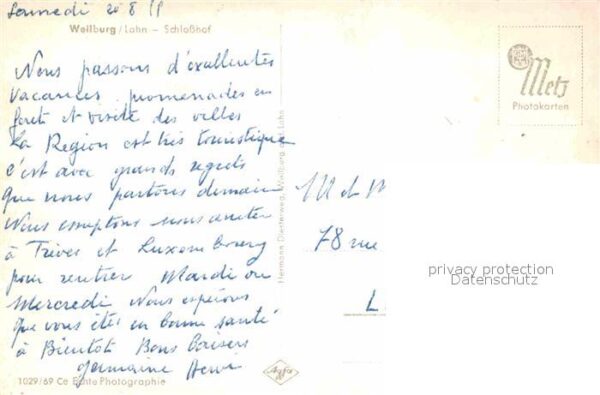 Samedi 20 8
Weilburg/Lahn – Schloßhof
Nous passons d'excellentes
vacances promenades en
forêt et visite des villes
La Region est très touristique
c'est avec grands regrets
que nous partons demain
Nous comptons nous arrêter
à Trèves et Luxembourg
pour rentrer Mardi ou
Mercredi Nous espérons
que vous êtes en bonne santé
à Bientôt Bons baisers
Germaine
1029/69 Ce Echte Photographie
Hermann Diesterweg, Weilburg
Agfa
Metz
Photokarten
M et M
78 rue
L
privacy protection
Datenschutz